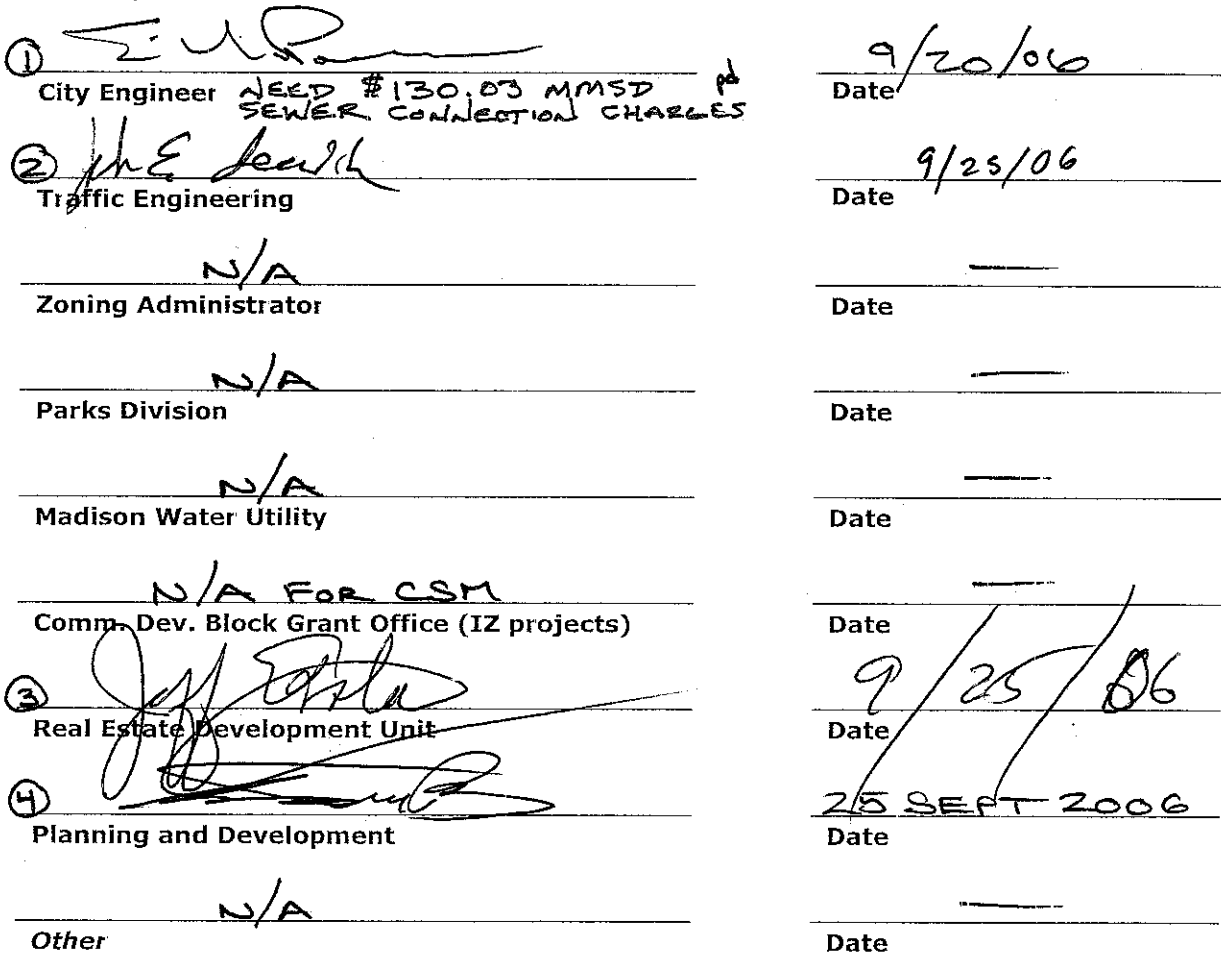 ① 9/20/06
City Engineer NEED $130.03 MMSD pd Date
SEWER CONNECTION CHARGES
② 9/25/06
Traffic Engineering Date
N/A —
Zoning Administrator Date
N/A —
Parks Division Date
N/A —
Madison Water Utility Date
N/A FOR CSM —
Comm. Dev. Block Grant Office (IZ projects) Date
③ 9/25/06
Real Estate Development Unit Date
④ 25 SEPT 2006
Planning and Development Date
N/A —
Other Date